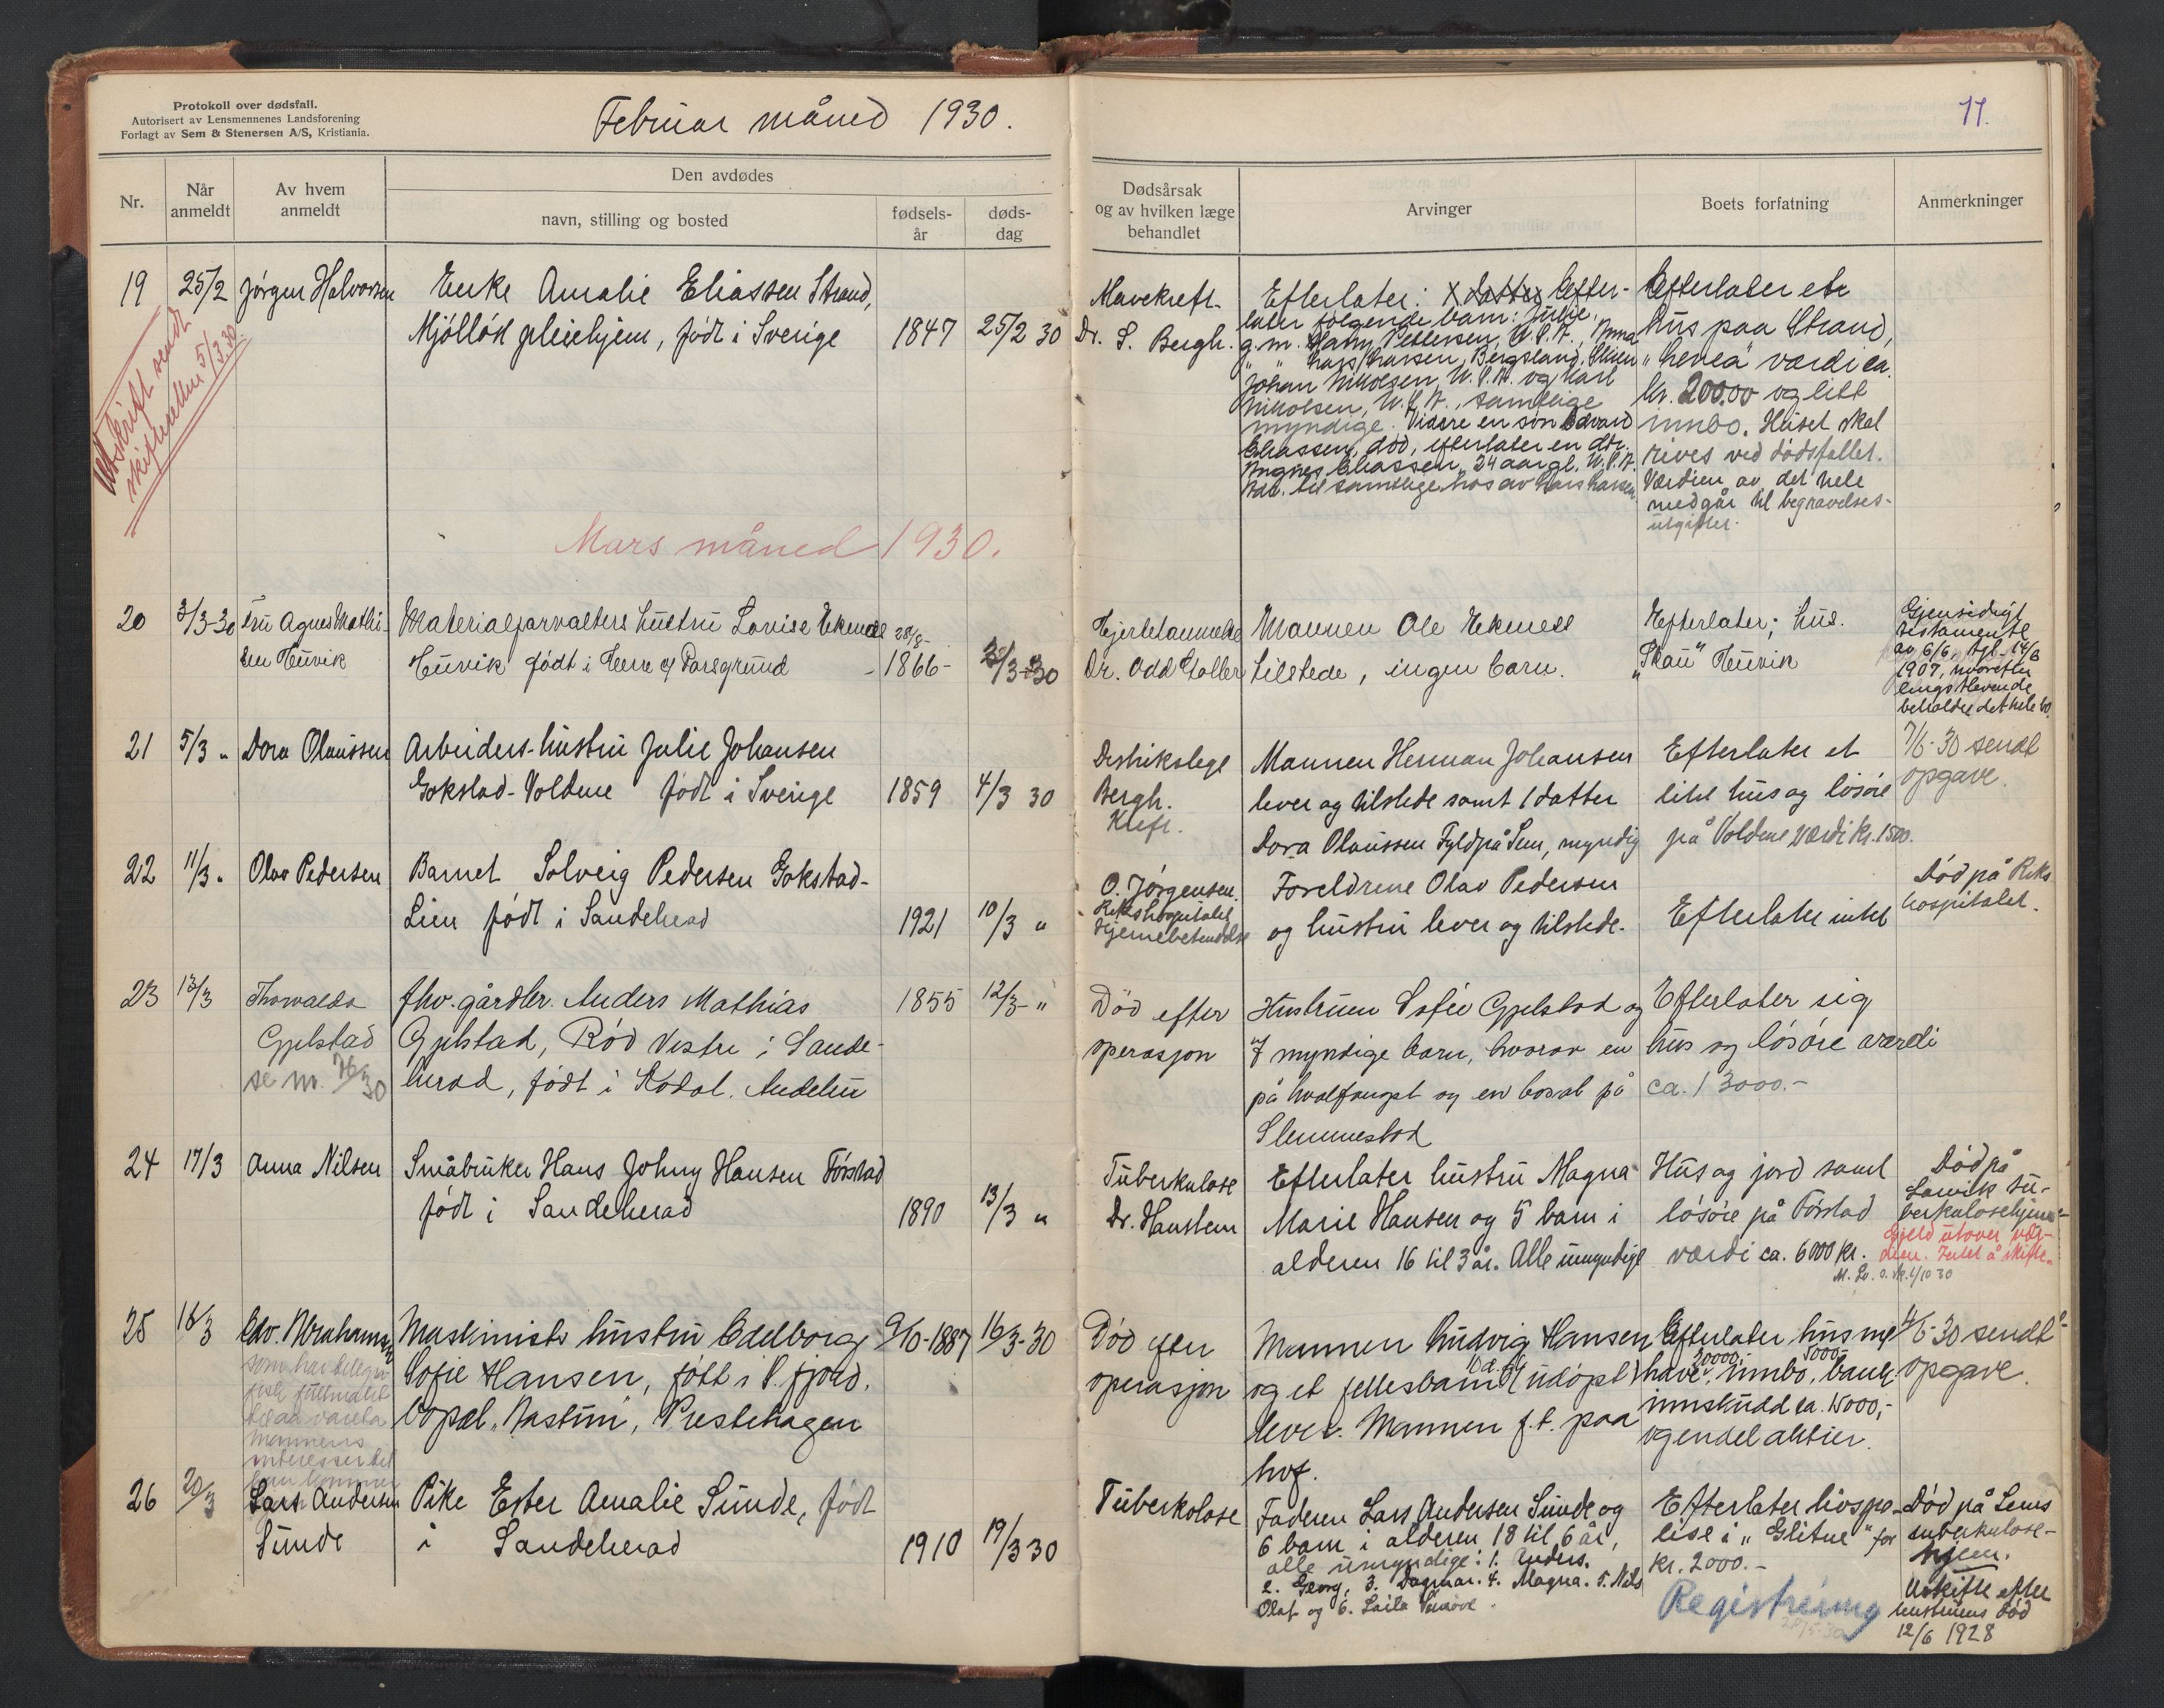 Protokoll over dødsfall.
Autorisert av Lensmennenes Landsforening
Forlagt av Sem & Stenersen A/S, Kristiania.
Februar måned 1930.
11.
Nr.
Når anmeldt
Av hvem anmeldt
Den avdødes
navn, stilling og bosted
fødsels-
år
døds-
dag
Dødsårsak
og av hvilken læge
behandlet
Arvinger
Boets forfatning
Anmerkninger
19 25/2 Jörgen Halvorsen
Enke Amalie Eliassen Strand,
Mjölløst pleiehjem, født i Sverige 1847 25/2 30
Avskrift sendt
skifteretten 5/3.30.
Mavekreft.
Dr. S. Bergh.
Efterlater: x datter Efter-
later følgende barn: Julie,
g.m. Harry Pettersen, U.S.A., Anna
" " Lars Larsen, Bergsland,
Johan Nikolsen, U.S.A. og Karl
Nikolsen, U.S.A., samtlige
myndige. Videre en sön Edvard
Eliassen, død, efterlater en dtr.
Angnes Eliassen, 24 aar gl. U.S.A.
Adr. til samtlige hos av Lars Larsen
Efterlater etr
hus paa Strand,
værdi ca.
kr. 200.00 og litt
innbo. Huset skal
rives ved dødsfallet.
Værdien av det hele
medgår til begravelses-
utgifter.
Mars måned 1930.
20 3/3-30 Fru Agnes Mathi-
sen Huvik
Materialforvalters hustru Lovise Eknes 28/8-
Huvik født i Herre og Porsgrund - 1866 - 3/3-30
Hjertelammelse
Dr. Odd
Mannen Ole Eknes
tilstede, ingen barn.
Efterlater; hus.
Huvik
Gjensidigt
testamente
av 6/6, tgl. 14/6
1907, hvorefter
lengstlevende
beholder det hele bo.
21 5/3 " Dora Olaussen
Arbeiders-hustru Julie Johansen
Gokstad-Voldene født i Sverige 1859 4/3 30
Distrikslege
Bergh.
Kreft.
Mannen Herman Johansen
lever og tilstede samt 1 datter
Dora Olaussen Fyldpå Sem, myndig
Efterlater et
litet hus og lösöre
på Voldene værdi kr. 1500.
7/6-30 sendt
opgave.
22 11/3 " Olav Pedersen
Barnet Solveig Pedersen Gokstad-
Lien født i Sandeherad 1921 10/3 "
O. Jørgensen.
Rikshospitalet
Hjernebetendelse
Foreldrene Olav Pedersen
og hustru lever og tilstede.
Efterlater intet
Død på Riks
hospitalet.
23 13/3 Thorvalda
Gjelstad
se nr. 76/30
fhv. gårdbr. Anders Mathias 1855 12/3 - "
Gjelstad, Röd Vestre i Sande-
herad, født i Kodal. Andebu
Død efter
operasjon
Hustruen Sofie Gjelstad og
7 myndige barn, hvorav en
på hvalfangst og en bosat på
Slemmestad
Efterlater sig
hus og lösöre værdi
ca. 13000.-
24 17/3 Anna Nilsen
Småbruker Hans Johny Hansen Förstad
født i Sandeherad 1890 13/3 "
Tuberkulose
Dr. Hanstein
Efterlater hustru Magna
Marie Hansen og 5 barn i
alderen 16 til 3 år. Alle umyndige
Hus og jord samt
lösöre på Förstad
værdi ca. 6000 kr.
Død på
Larvik tu-
berkulosehjem
Gjeld utover vær-
dien. Intet å skifte.
25 18/3 Edv. Abrahamsen
som har telegra-
fisk fullmakt
til aa vareta
mannens
interesser til
han kommer
Maskinists hustru Edelborg 9/10-1887 16/3-30
Sofie Hansen, født i S. fjord.
bopæl "Nastun", Prestehagen
Død efter
operasjon
Mannen Ludvig Hansen
og et fellesbarn 10 d. gl. (udöpt)
lever. Mannen f.t. paa
hvf.
Efterlater hus me
have 20000,-, innbo 5000-, bank-
innskudd ca. 15000,-
og endel aktier.
4/6-30 sendt
opgave.
26 20/3 Lars Andersen
Sunde
Pike Ester Amalie Sunde, født
i Sandeherad 1910 19/3 30
Tuberkolose
Faderen Lars Andersen Sunde og
6 barn i alderen 18 til 6 år,
alle umyndige: 1. Anders.
2. Georg, 3. Dagmar. 4. Magna. 5. Nils
Olaf og 6. Laila
Efterlater livspo-
lise i "Glitne" for
kr. 2000.-
Registrering
Død på Sems
tuberkulose-
hjem.
Uskifte efter
hustruens död
12/6 1928